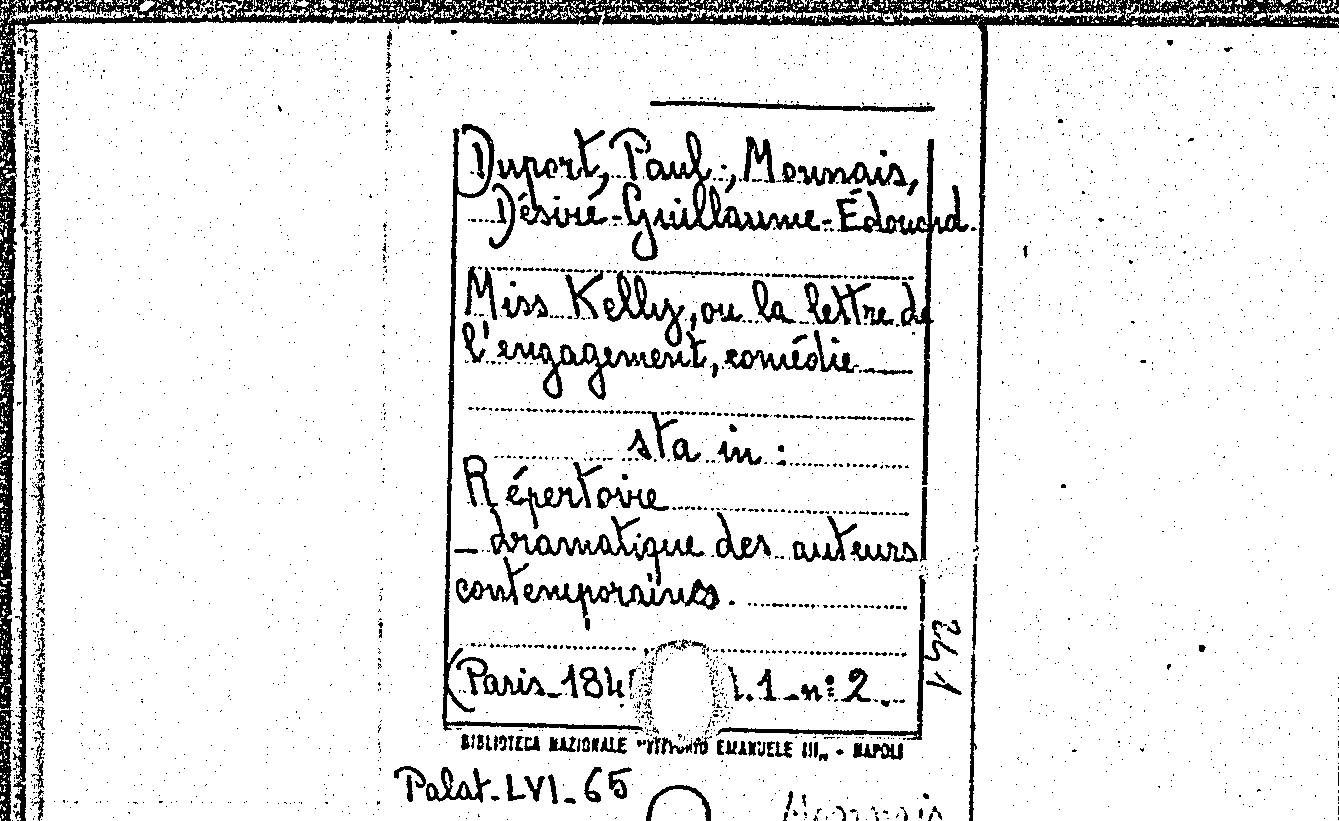 Duport, Paul; Monnais,
Désiré-Guillaume-Édouard.
Miss Kelly, ou la lettre de
l'engagement, comédie
sta in:
Répertoire
dramatique des auteurs
contemporains.
(Paris-184 .1-n:2.
BIBLIOTECA NAZIONALE "VITTORIO EMANUELE III„ - NAPOLI
Palat-LVI-65
Monnais